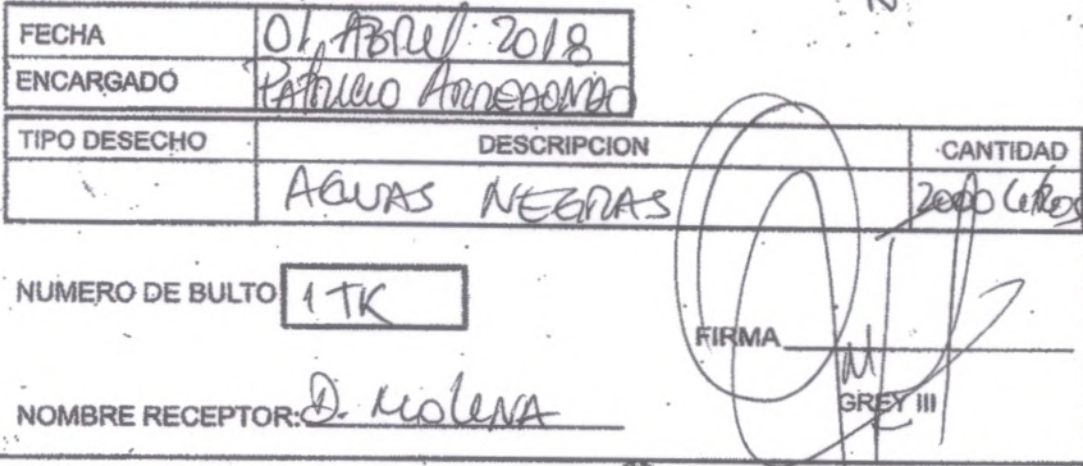 FECHA 01, ABRIL 2018
ENCARGADO PATRICIO ARREDONDO
TIPO DESECHO DESCRIPCION CANTIDAD
AGUAS NEGRAS 2000 LITROS
NUMERO DE BULTO 1 TK
FIRMA
NOMBRE RECEPTOR: D. MOLINA
GREY III